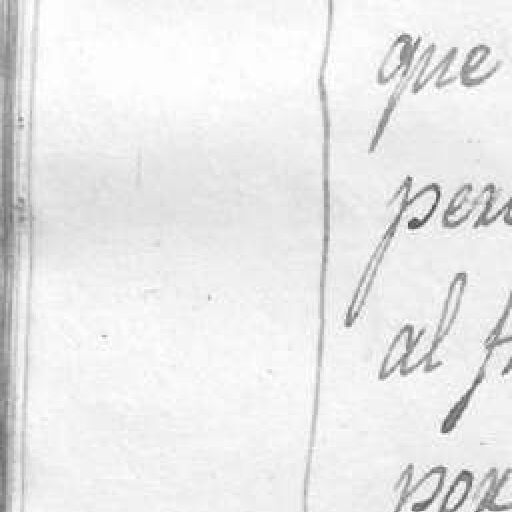 que
pero
al f
por